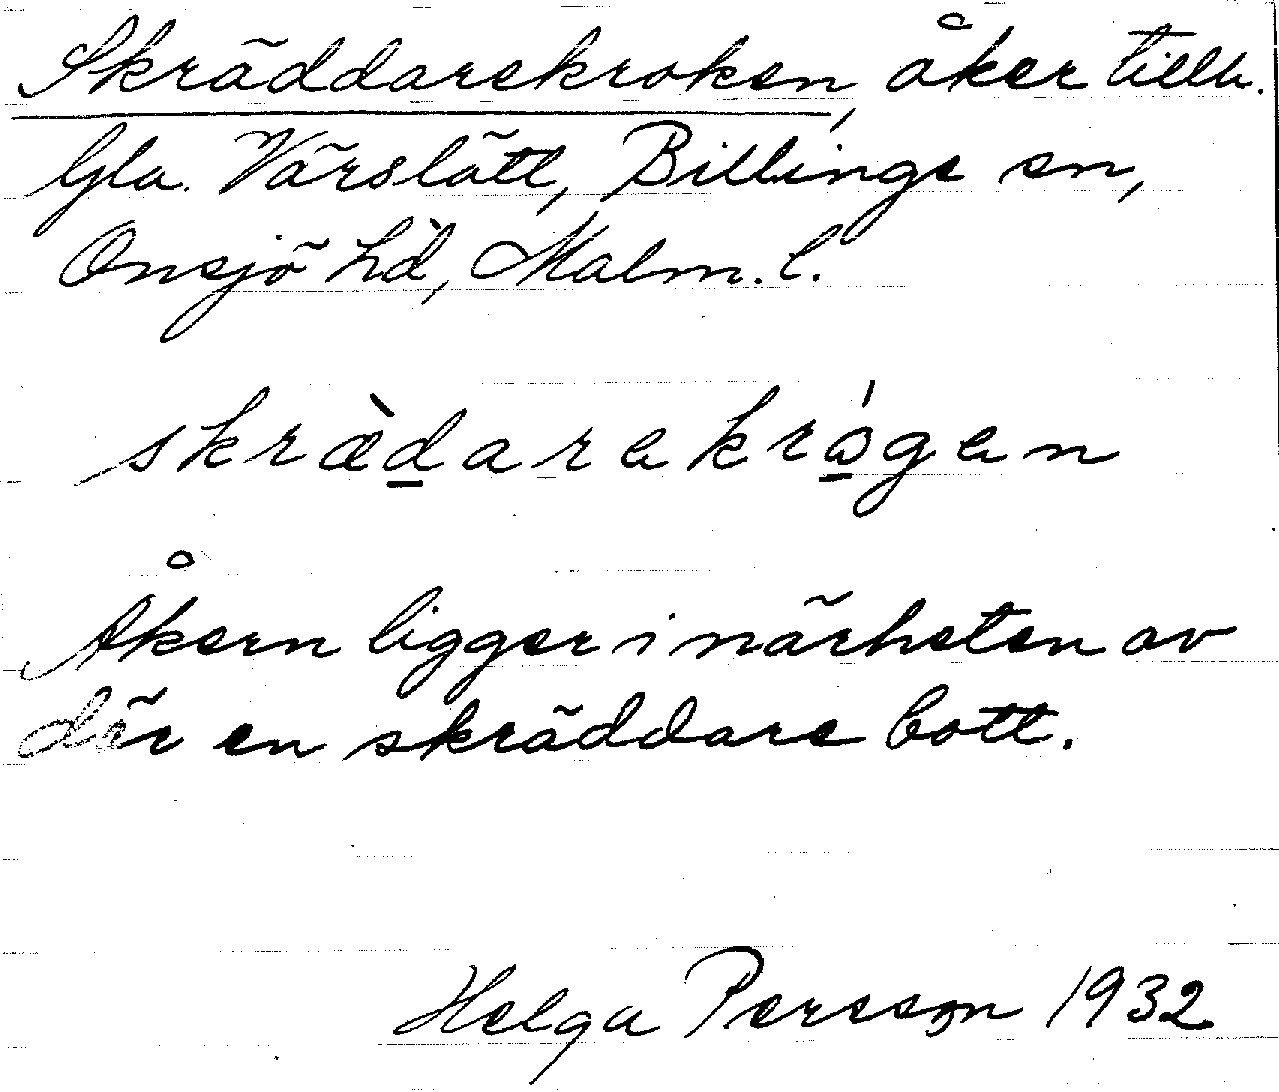 Skräddarekroken, åker tillh.
Gla. Värslätt, Billinge sn,
Onsjö hd, Malm. l.
skræ̀darekrǻgen
Åkern ligger i närheten av
där en skräddare bott.
Helga Persson 1932